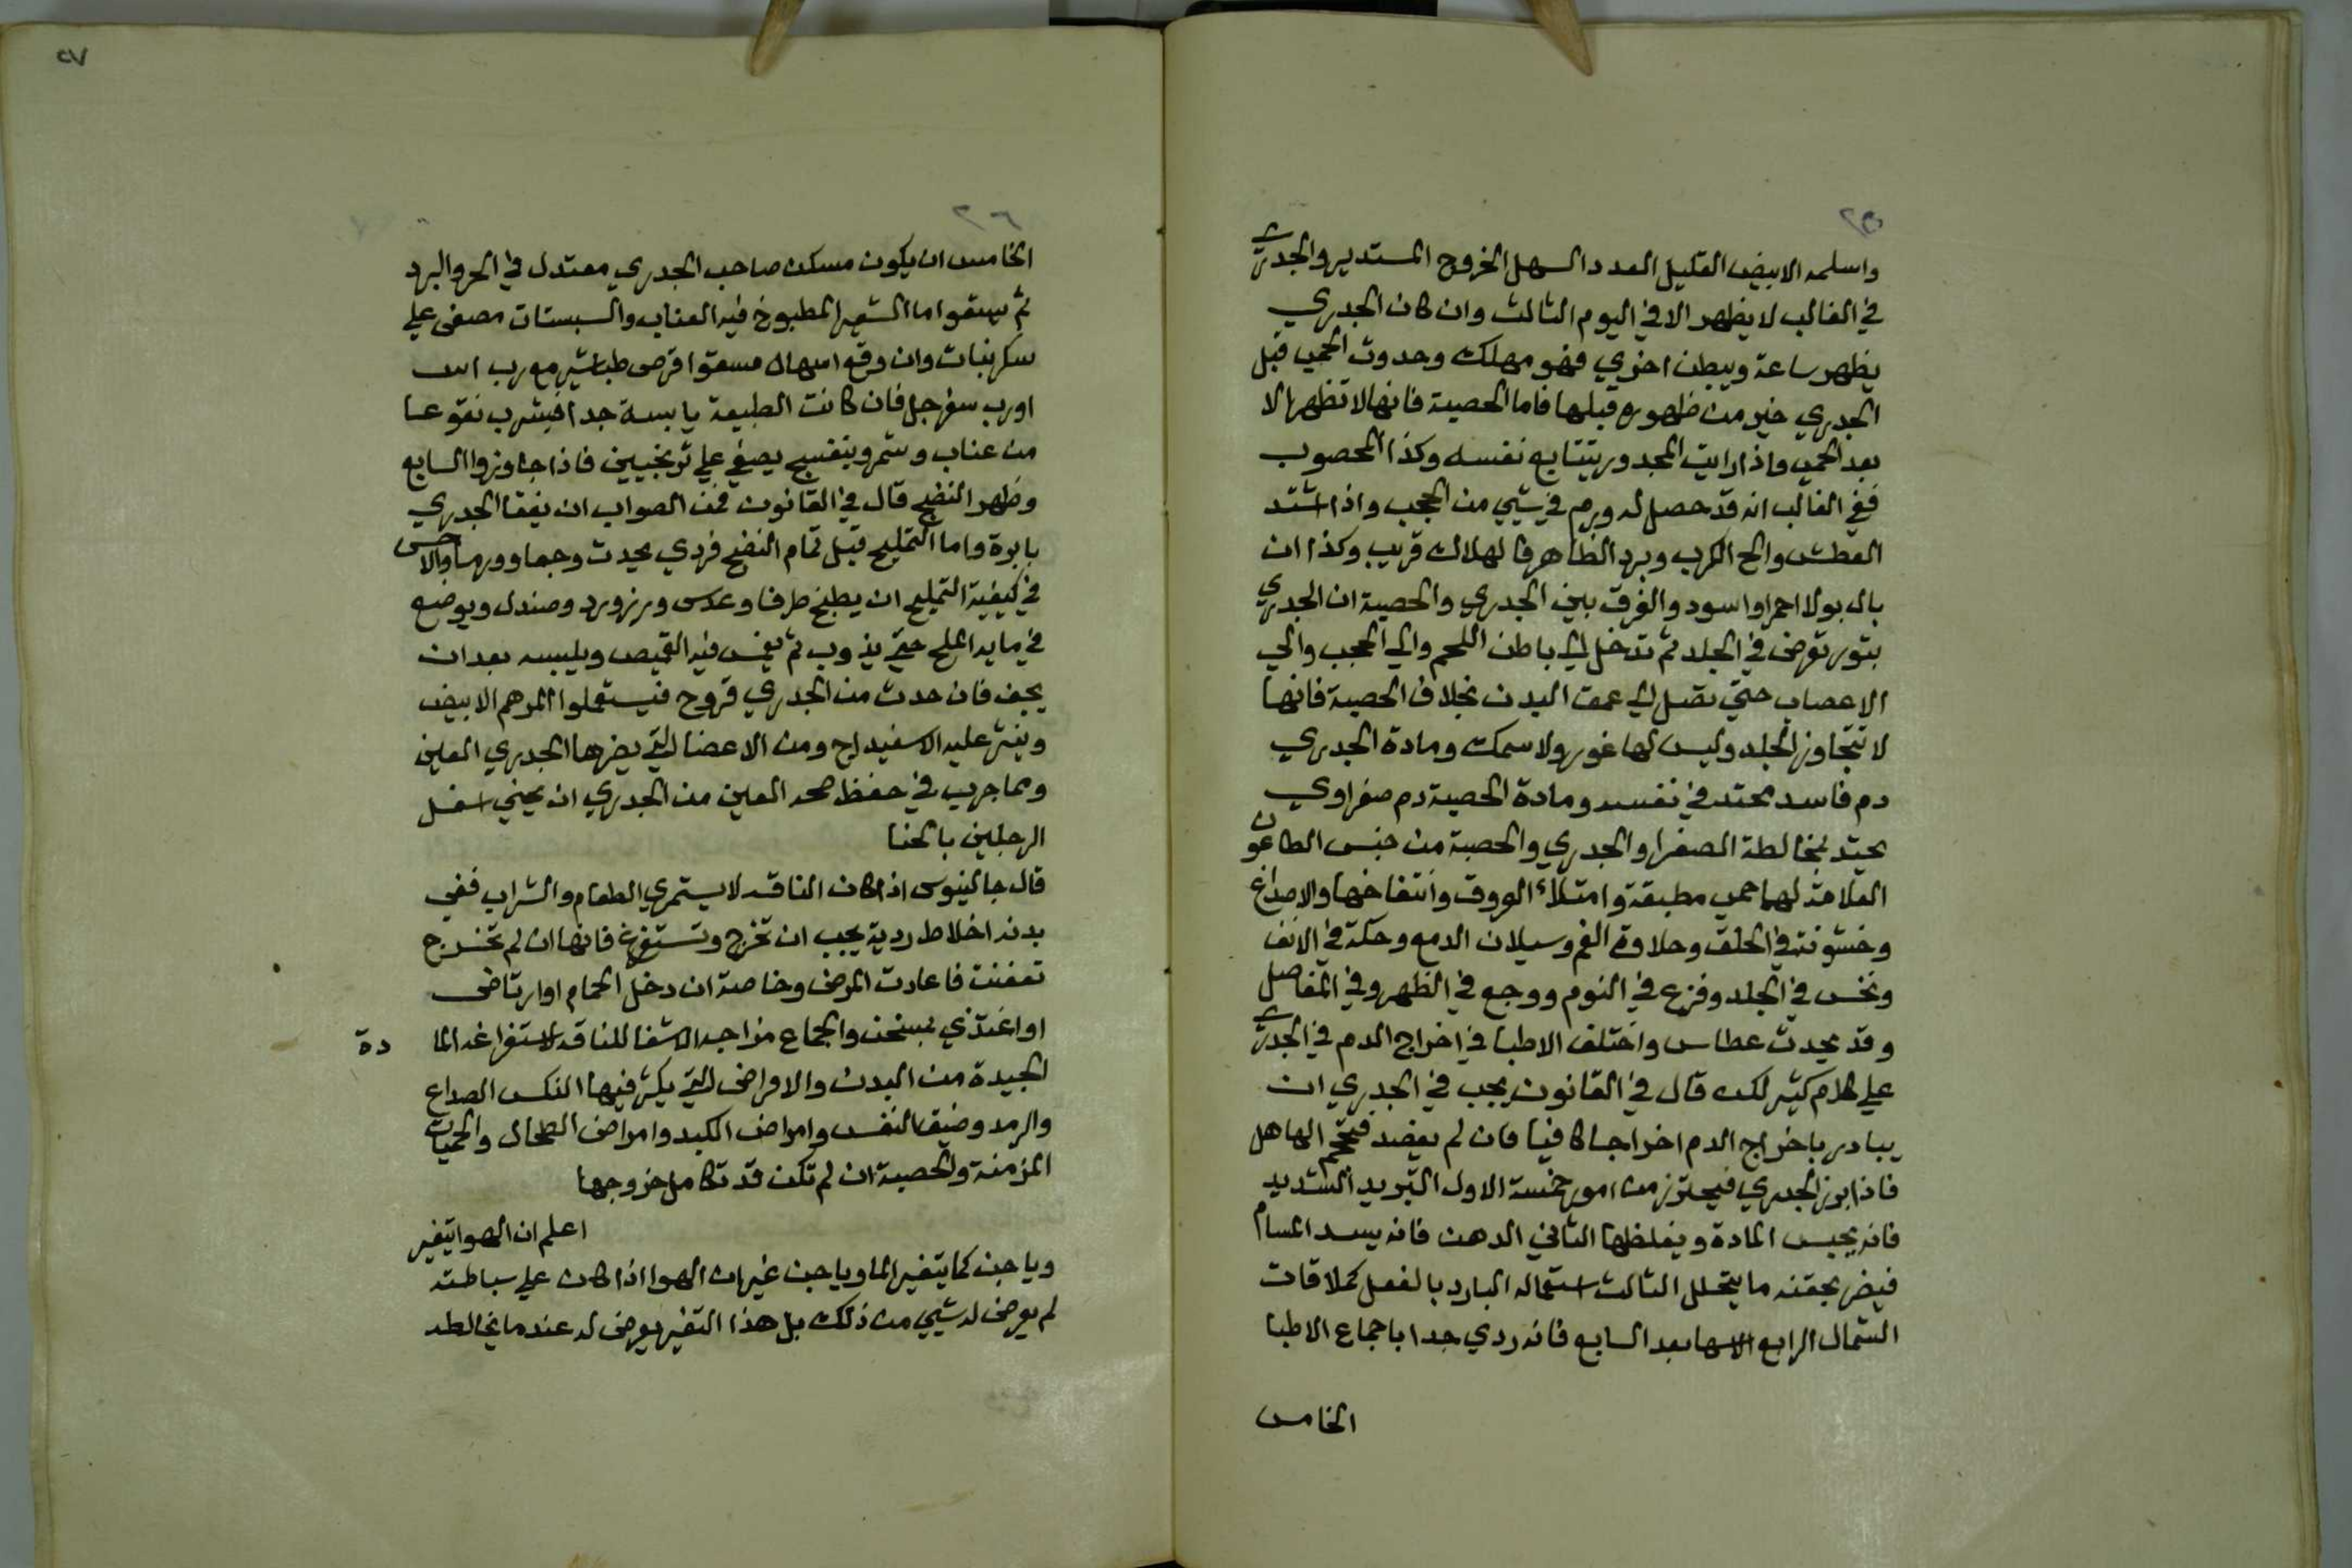 ٢٥
واسلمه الابيض القليل العدد السهل الخروج المستدير والجدري
في الغالب لا يظهر الا في اليوم الثالث وان كان الجدري
يظهر ساعة ويبطن اخري فهو مهلك وحدوث الحمي قبل
الجدري خير من ظهوره قبلها فاما الحصبة فانها لا تظهر الا
بعد الحمي واذا رايت المجدور يتتابع نفسه وكذا المحصوب
ففي الغالب انه قد حصل له ورم في شيي من الحجب واذا اشتد
العطش والح الكرب وبرد الظاهر فالهلاك قريب وكذا ان
بال بولا احمر او اسود والفرق بين الجدري والحصبة ان الجدري
بثور تعرض في الجلد ثم تدخل الي باطن اللحم والي الحجب والي
الاعصاب حتي تصل الي عمق البدن بخلاف الحصبة فانها
لا تتجاوز الجلد وليس لها غور ولا سمك ومادة الجدري
دم فاسد محتد في نفسه ومادة الحصبة دم صفراوي
يحتد بمخالطة الصفرا والجدري والحصبة من جنس الطاعون
العلامة لهما حمي مطبقة وامتلاء العروق وانتفاخها والاصداغ
وخشونة في الحلق وحلاوة الفم وسيلان الدمع وحكة في الانف
ونخس في الجلد وفزع في النوم ووجع في الظهر وفي المفاصل
وقد يحدث عطاس واختلف الاطبا في اخراج الدم في الجدري
علي كلام كثير لكن قال في القانون يجب في الجدري ان
يبادر باخراج الدم اخراجا كافيا فان لم يفصد فيحجم الهاهل
فاذا ابرز الجدري فيحترز من امور خمسة الاول التبريد الشديد
فانه يحبس المادة ويغلظها الثاني الدهن فانه يسد المسام
فيضر بحقنه ما يتحلل الثالث استعماله البارد بالفعل كملاقات
الشمال الرابع الاسها بعد السابع فانه ردي جدا باجماع الاطبا
الخامس
٢٧
٢٦
الخامس ان يكون مسكن صاحب الجدري معتدل في الحر والبرد
ثم يسقوا ما الشعير المطبوخ فيه العناب والسبستان مصفي علي
سكر نبات وان وقع اسهال فيسقوا قرص طباشير مع رب اس
او رب سفرجل فان كانت الطبيعة يابسة جدا فيشرب نقوعا
من عناب وتمر وبنفسج يصفي علي ترنجبين فاذا جاوزوا السابع
وظهر النضج قال في القانون فمن الصواب ان يفقا الجدري
بابرة واما التمليح قبل تمام النضج فردي يحدث وجعا وورما والاحسن
في كيفية التمليح ان يطبخ طرفا وعدس وزرورد وصندل ويوضع
في مايه الملح حتي يذوب ثم يغمس فيه القميص ويلبسه بعد ان
يجف فان حدث من الجدري قروح فيستعملوا المرهم الابيض
وينثر عليه الاسفيداج ومن الاعضا التي يضرها الجدري العين
ومما جرب في حفظ صحه العين من الجدري ان يحني اسفل
الرجلين بالحنا
قال جالينوس اذا كان الناقه لا يستمري الطعام والشراب ففي
بدنه اخلاط ردية يجب ان تخرج وتستفرغ فانها ان لم تخرج
تعفنت فاعادت المرض وخاصة ان دخل الحمام او ارتاض
او اغتذي بمسخن والجماع من اجد الاشقا للناقه لاستفراغه الما دة
الجيدة من البدن والامراض التي يكثر فيها النكس الصداع
والرمد وضيق النفس وامراض الكبد وامراض الطحال والحميات
المزمنة والحصبة ان لم تكن قد تكامل خروجها
اعلم ان الهوا يتغير
وياجن كما يتغير الما وياجن غير ان الهوا اذا كان علي سباطته
لم يعرض له شيي من ذلك بل هذا التغير يعرض له عندما يخالطه